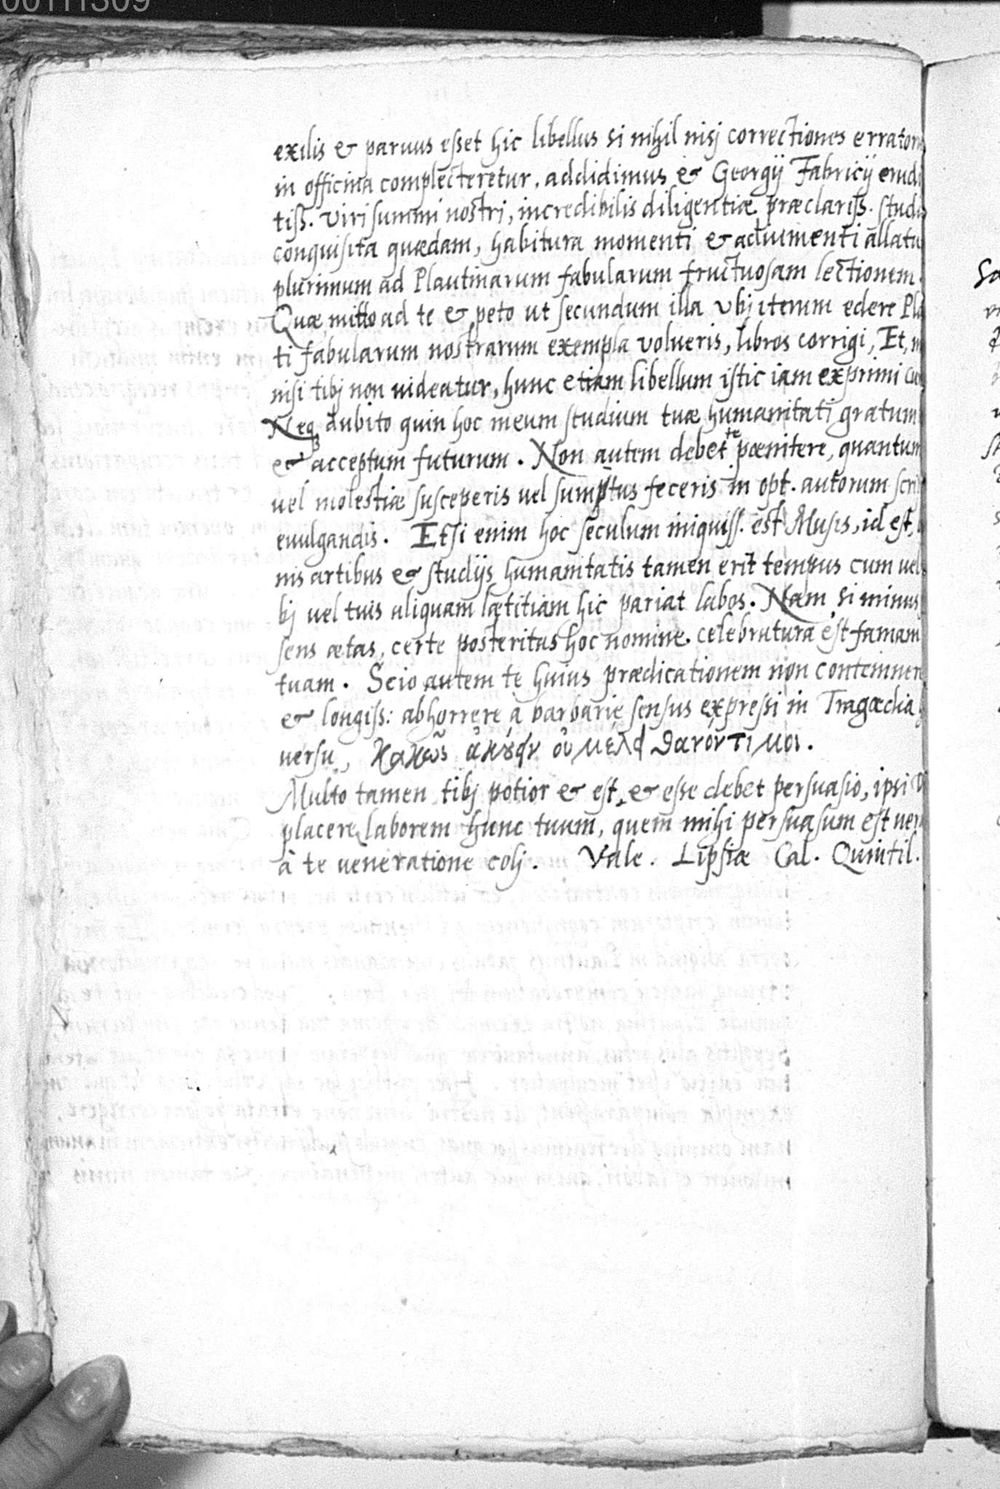 00111309
exilis & paruus esset hic libellus si nihil nisj correctiones errator
in officina complecteretur, addidimus & Georgij Fabricij erudi
tiss. viri summi nostri, incredibilis diligentiæ præclariss. studi
conquisita quædam, habitura momenti & adiumenti allatu
plurimum ad Plautinarum fabularum fructuosam lectionem.
Quæ mitto ad te & peto ut secundum illa vbj iterum edere Pla
ti fabularum nostrarum exempla volueris, libros corrigi, Et,
nisi tibj non uideatur, hunc etiam libellum istic iam exprimi cu
Neq dubito quin hoc meum studium tuæ humanitati gratum
& acceptum futurum. Non autem debet te pœnitere, quantum
uel molestiæ susceperis uel sumptus feceris in opt. autorum scri
euulgandis. Etsi enim hoc seculum iniquiss. est Musis, id est,
nis artibus & studijs humanitatis tamen erit tempus cum uel
bj uel tuis aliquam lætitiam hic pariat labos. Nam si minus
sens ætas, certe posteritas hoc nomine celebratura est famam
tuam. Scio autem te huius prædicationem non contemner
& longiss: abhorrere à barbarie sensus expressi in Tragœdia
versu, κακῶς ἀκούειν οὐ μέλει θανόντι μοι.
Multo tamen tibj potior & est, & esse debet persuasio, ipsi D
placere laborem hunc tuum, quem mihi persuasum est uer
à te veneratione colj. Vale. Lipsiæ Cal. Quintil.